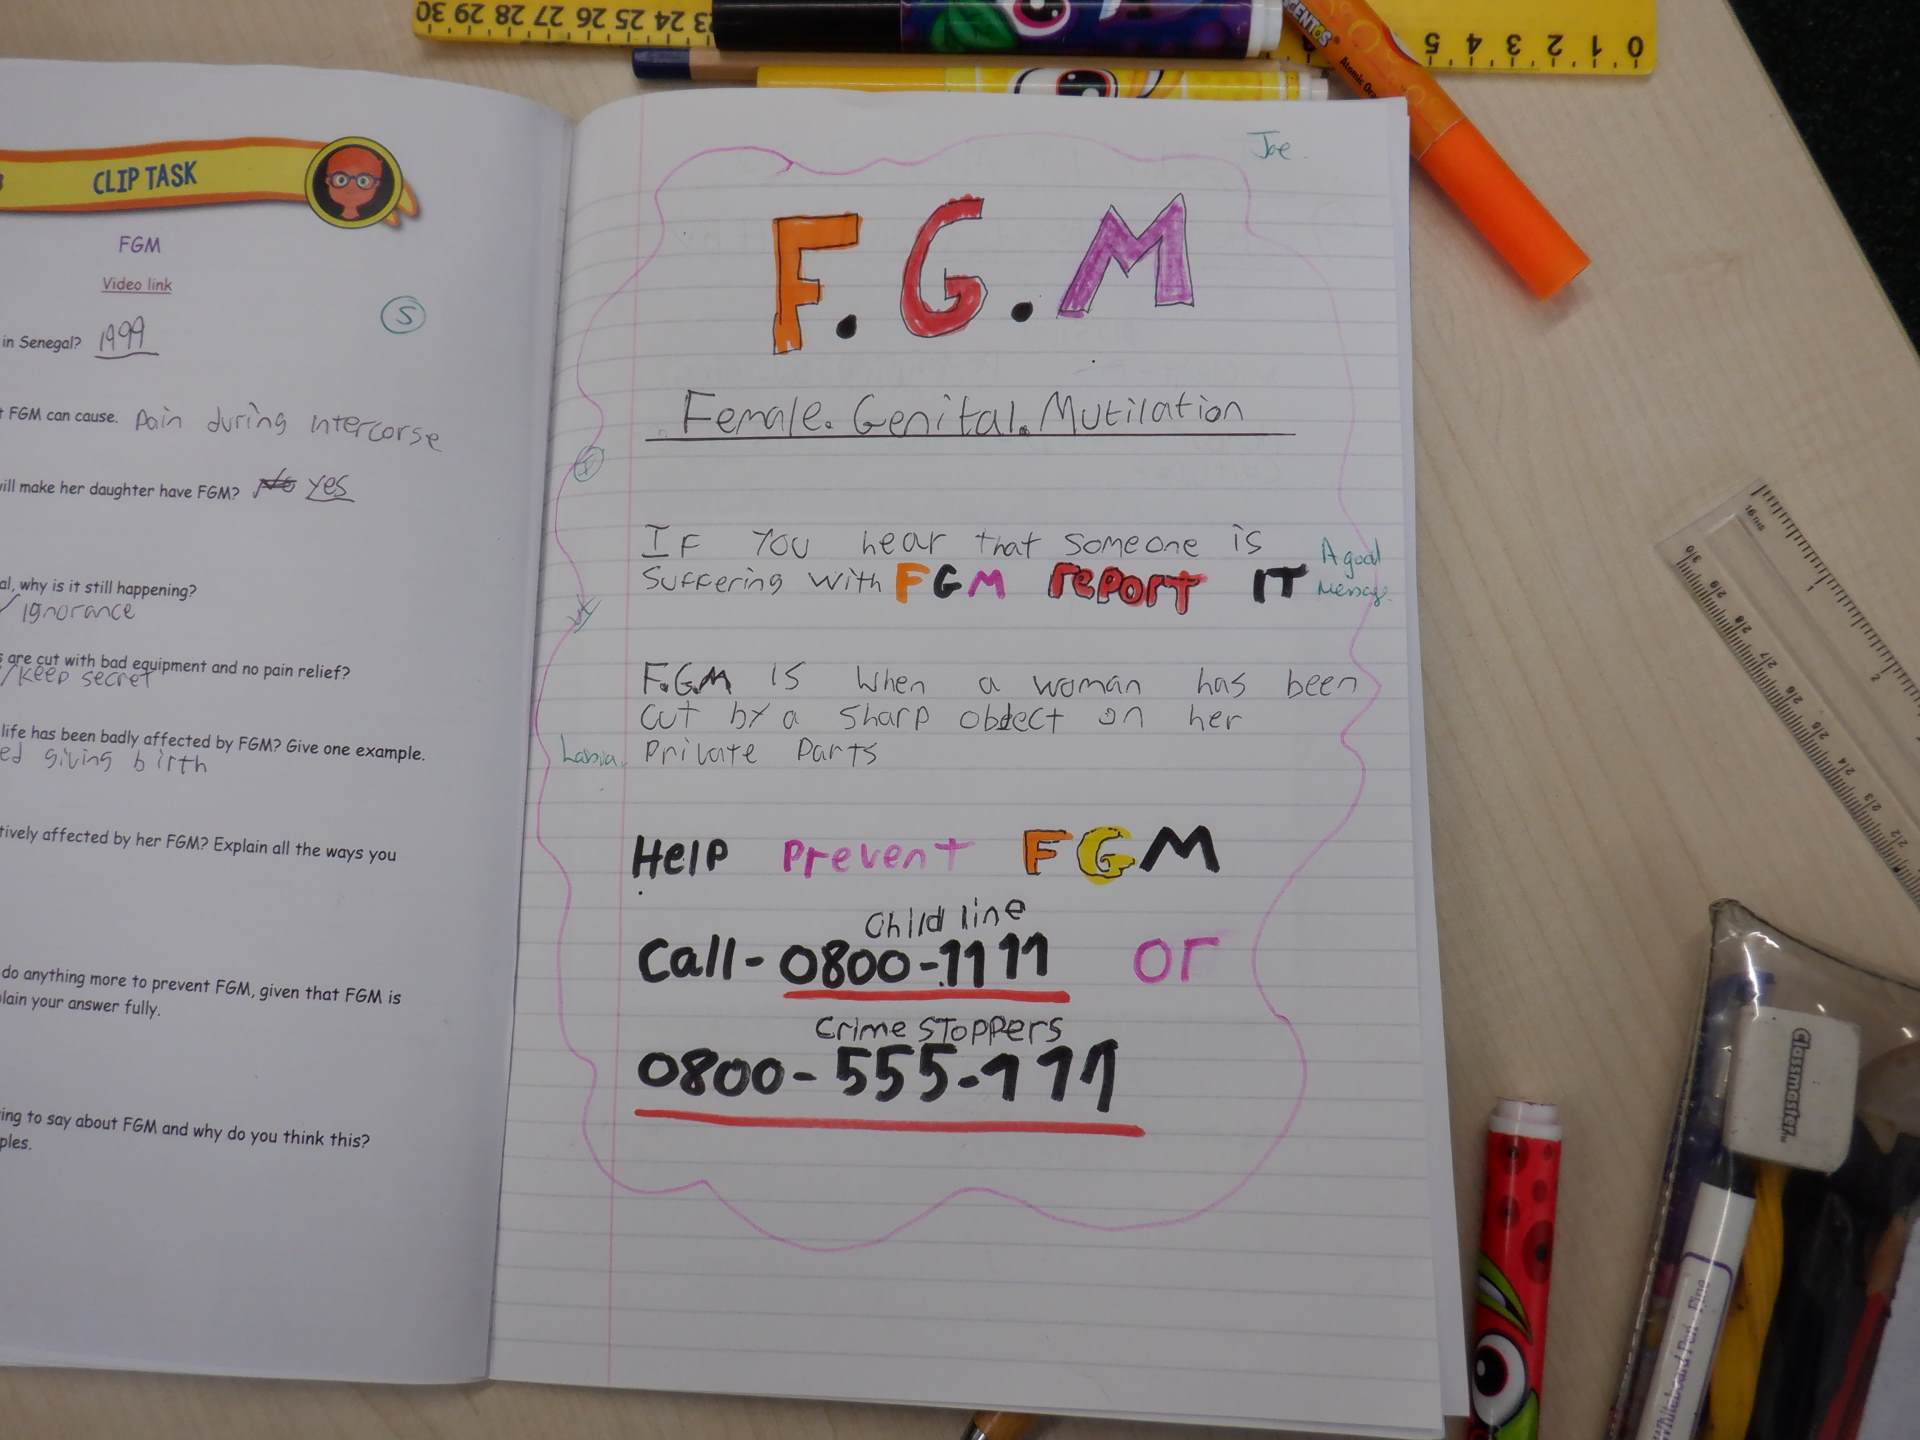 30 29 28 27 26 25 24 23
5 4 3 2 1 0
Atomic Ora
CLIP TASK
FGM
Video link
S
in Senegal? 1999
FGM can cause. Pain during intercorse
ill make her daughter have FGM? No yes
al, why is it still happening?
ignorance
are cut with bad equipment and no pain relief?
/keep secret
life has been badly affected by FGM? Give one example.
ed giving birth
tively affected by her FGM? Explain all the ways you
do anything more to prevent FGM, given that FGM is
lain your answer fully.
ing to say about FGM and why do you think this?
ples.
Joe.
F.G.M
Female.Genital.Mutilation
IF you hear that someone is
suffering with FGM report IT
A good
message.
F.G.M is when a woman has been
cut by a sharp object on her
Labia. Private Parts
Help prevent FGM
Child line
Call-0800-1111 or
Crime stoppers
0800-555-111
Classmaster
Whiteboard Pen - Fine